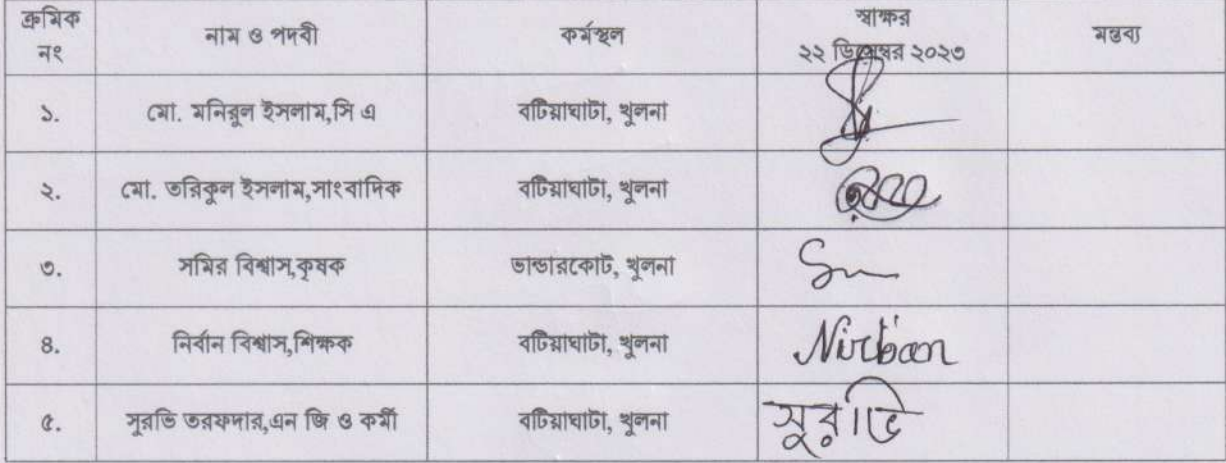 ক্রমিক নং
নাম ও পদবী
কর্মস্থল
স্বাক্ষর
২২ ডিসেম্বর ২০২৩
মন্তব্য
১. মো. মনিরুল ইসলাম,সি এ বটিয়াঘাটা, খুলনা
২. মো. তরিকুল ইসলাম,সাংবাদিক বটিয়াঘাটা, খুলনা
৩. সমির বিশ্বাস,কৃষক ভান্ডারকোট, খুলনা
৪. নির্বান বিশ্বাস,শিক্ষক বটিয়াঘাটা, খুলনা Nirban
৫. সুরভি তরফদার,এন জি ও কর্মী বটিয়াঘাটা, খুলনা সুরভি